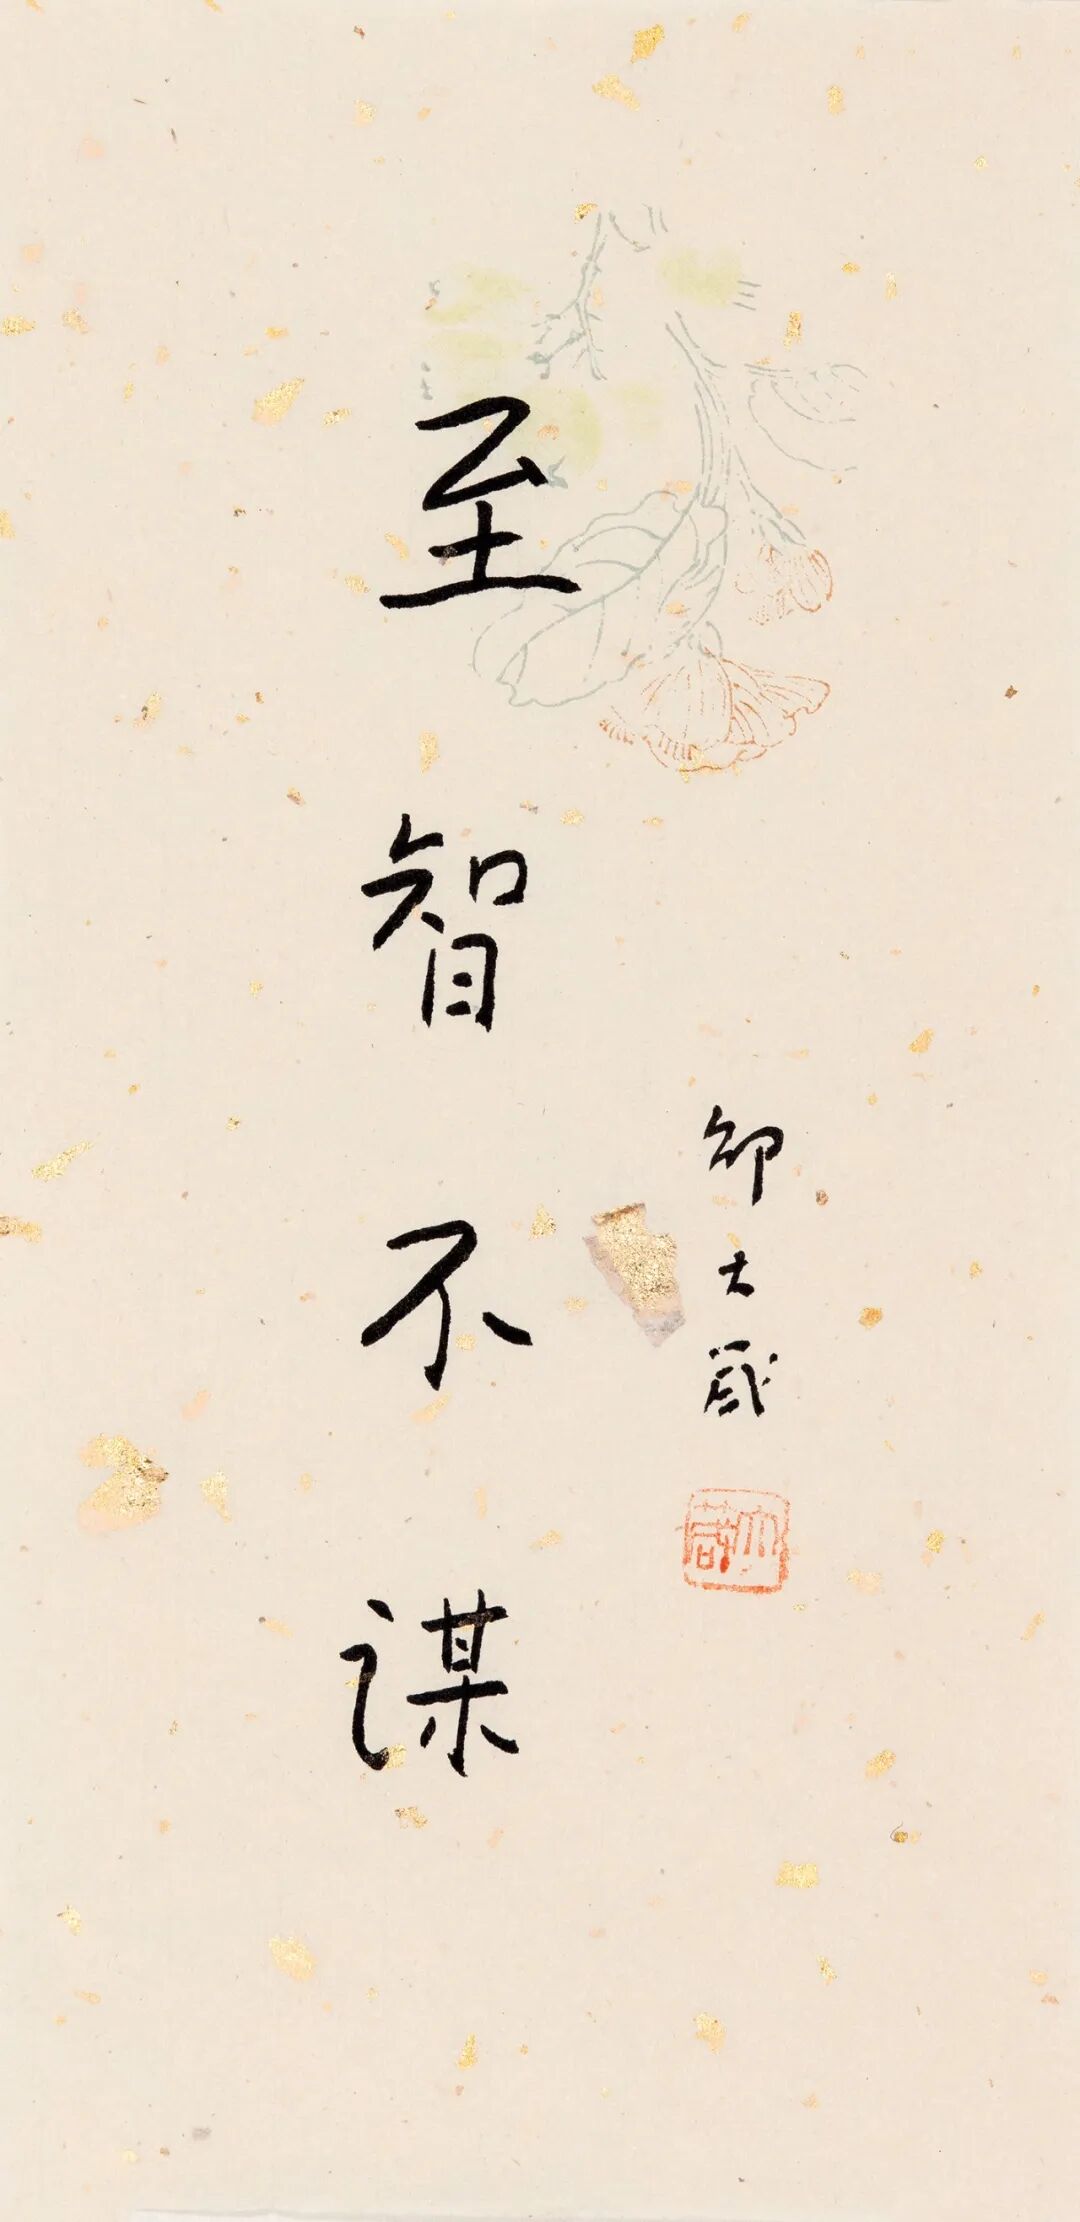 至智不谋
邵大箴